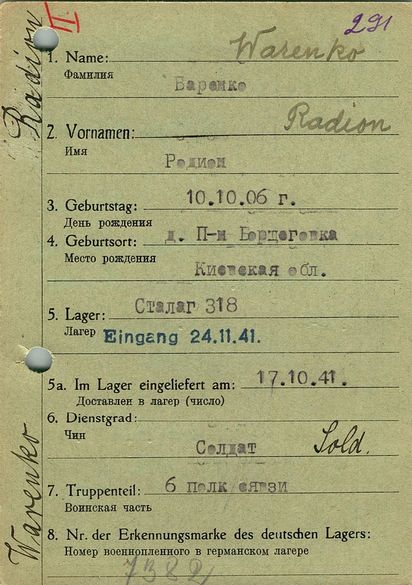 II
291
Radion
1. Name: Warenko
Фамилия
Варенко
2. Vornamen: Radion
Имя
Родион
3. Geburtstag: 10.10.06 г.
День рождения
4. Geburtsort: д. П-и
Место рождения
Киевская обл.
5. Lager: Сталаг 318
Лагер Eingang 24.11.41.
5a. Im Lager eingeliefert am: 17.10.41.
Доставлен в лагер (число)
6. Dienstgrad:
Чин
Солдат Sold.
Warenko
7. Truppenteil: 6 полк связи
Воинская часть
8. Nr. der Erkennungsmarke des deutschen Lagers:
Номер военнопленного в германском лагере
7382